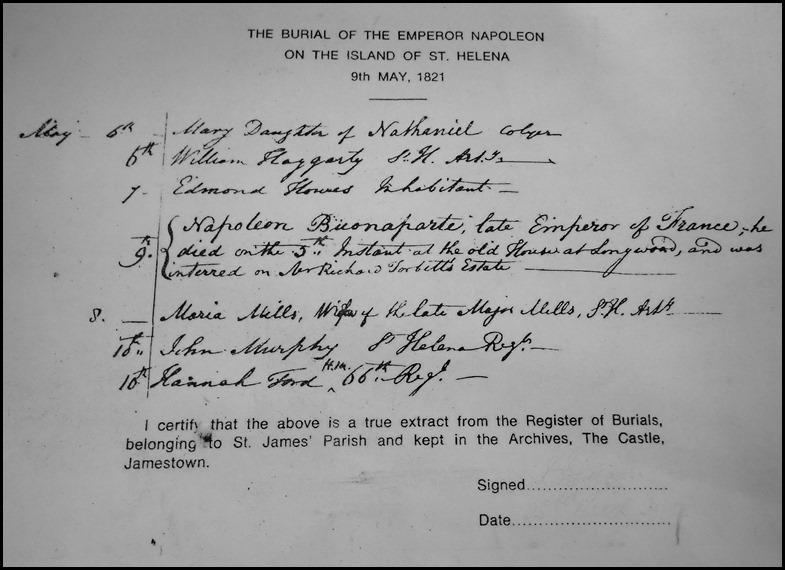 THE BURIAL OF THE EMPEROR NAPOLEON
ON THE ISLAND OF ST. HELENA
9th MAY, 1821
May 6th Mary Daughter of Nathaniel Colyer
6th William Haggarty St. H. Arty.
7 - Edmond Howes Inhabitant -
Napoleon Buonaparte, late Emperor of France, he
9th. died on the 5th Instant at the old House at Longwood, and was
interred on Mr Richard Torbett's Estate
8. - Maria Mills, Wife of the late Major Mills, St. H. Arty
10th John Murphy St Helena Regt. -
10th Hannah Ford H.M. 66th Regt. -
I certify that the above is a true extract from the Register of Burials,
belonging to St. James' Parish and kept in the Archives, The Castle,
Jamestown.
Signed............................
Date...............................